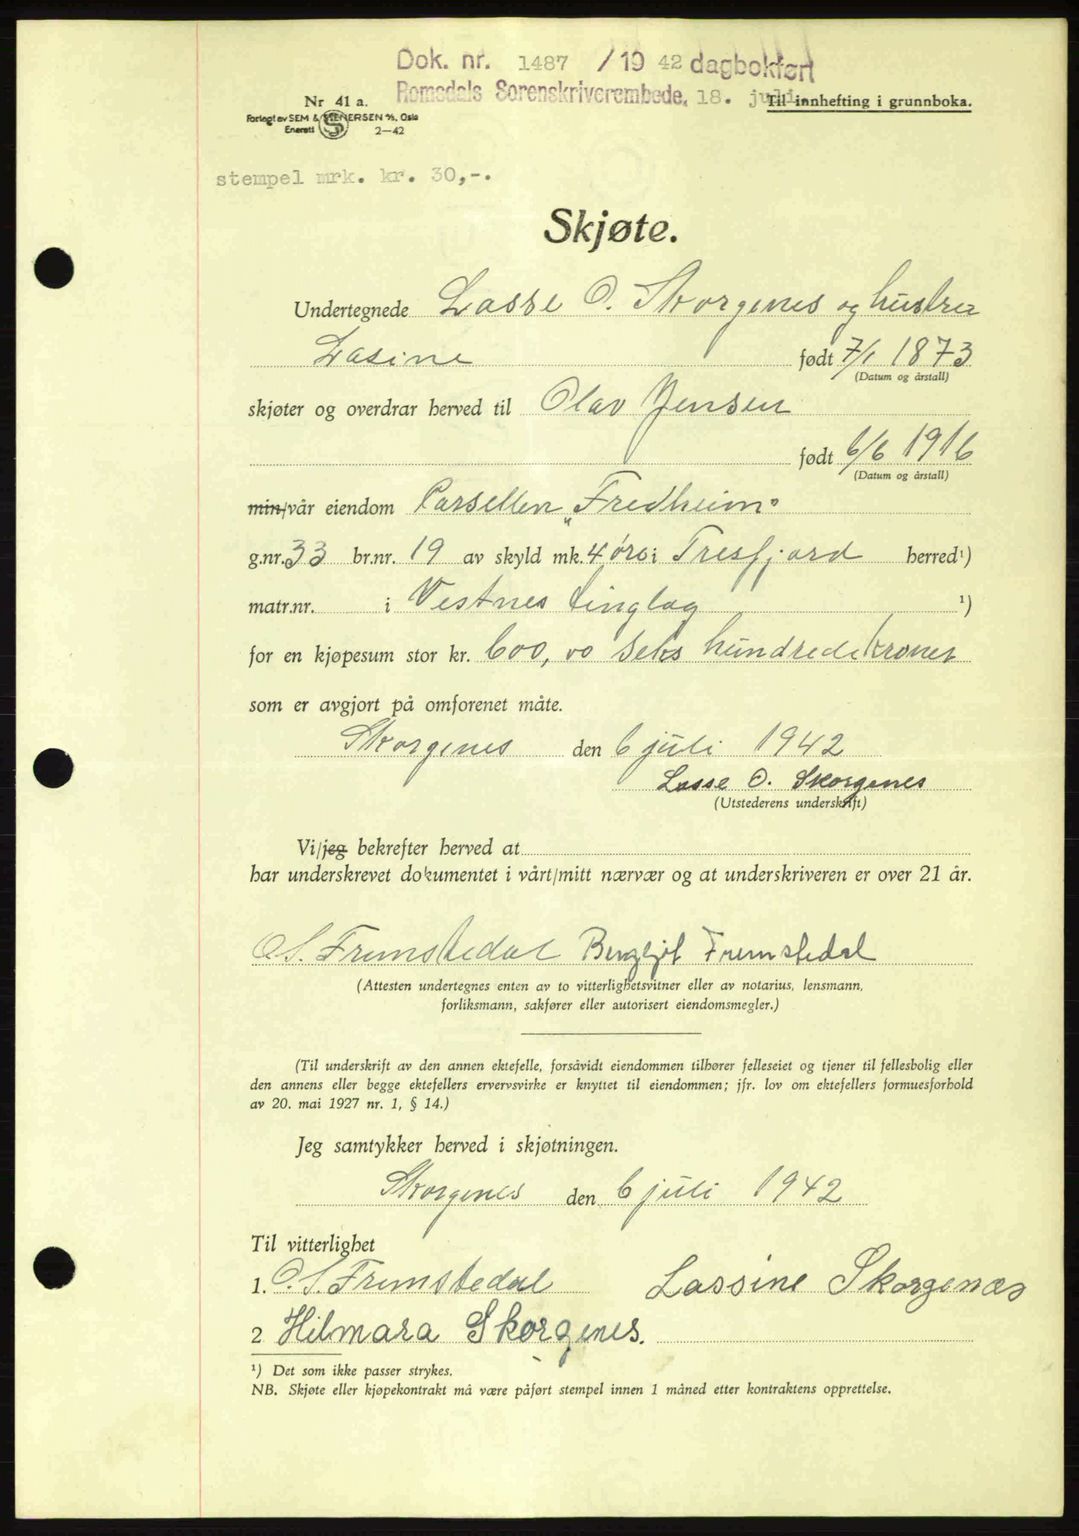 Dok. nr. 1487 / 19 42 dagbokført
Romsdals Sorenskriverembede, 18. juli.
Nr 41 a.
Til innhefting i grunnboka.
Forlagt av SEM & STENERSEN A/S, Oslo
Enerett 2—42
stempel mrk. kr. 30,-.
Skjøte.
Undertegnede Lasse O. Skorgenes og hustru
Lasine født 7/1 1873
(Datum og årstall)
skjøter og overdrar herved til Olav Jensen
født 6/6 1916
(Datum og årstall)
min/vår eiendom Parsellen „Fredheim"
g.nr. 33 br.nr. 19 av skyld mk. 4 øre i Tresfjord herred¹)
matr.nr. i Vestnes tinglag ¹)
for en kjøpesum stor kr. 600,00 seks hundrede kroner
som er avgjort på omforenet måte.
Skorgenes den 6 juli 1942
Lasse O. Skorgenes
(Utstederens underskrift)
Vi/jeg bekrefter herved at
har underskrevet dokumentet i vårt/mitt nærvær og at underskriveren er over 21 år.
O.S. Fremstedal Bergljot Fremstedal
(Attesten undertegnes enten av to vitterlighetsvitner eller av notarius, lensmann,
forliksmann, sakfører eller autorisert eiendomsmegler.)
(Til underskrift av den annen ektefelle, forsåvidt eiendommen tilhører felleseiet og tjener til fellesbolig eller
den annens eller begge ektefellers ervervsvirke er knyttet til eiendommen; jfr. lov om ektefellers formuesforhold
av 20. mai 1927 nr. 1, § 14.)
Jeg samtykker herved i skjøtningen.
Skorgenes den 6 juli 1942
Til vitterlighet
1. O.S. Fremstedal Lassine Skorgenæs
2 Hilmara Skorgenes.
¹) Det som ikke passer strykes.
NB. Skjøte eller kjøpekontrakt må være påført stempel innen 1 måned etter kontraktens opprettelse.